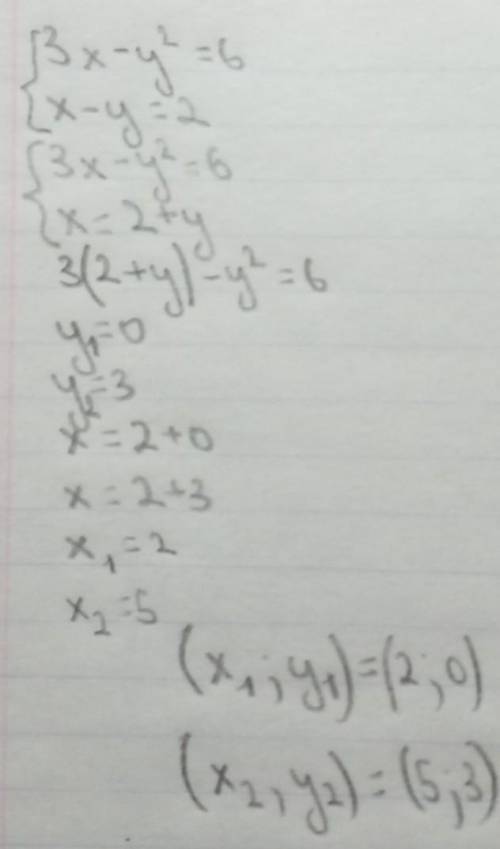 {3x-y²=6
{x-y=2
{3x-y²=6
{x=2+y
3(2+y)-y²=6
y₁=0
y₂=3
x=2+0
x=2+3
x₁=2
x₂=5
(x₁;y₁)=(2;0)
(x₂,y₂)=(5;3)